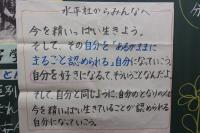 水平社からみんなへ
今を精いっぱい生きよう。
そして、その自分を「あるがままに
まるごと認められる」自分になっていこう。
自分を好きになる、そういうことなんだよ。
そして、自分と同じように、自分のとなりの人も
今を精いっぱい生きていることが認められる
自分になっていこう。